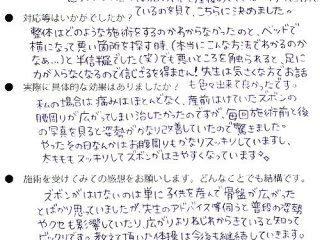 ているのを見て、こちらに決めました。
● 対応等はいかがでしたか？
整体はどのような施術をするのかわからなかったのと、ベッドで
横になって悪い箇所を探す時、(本当にこんな方法でわかるのか
なぁ…)と半信疑でした(笑)でも悪いところを触られると、足に
力が入らなくなるので信じざるを得ません！先生は気さくな方でお話
も色々出来て良かったです。
● 実際に具体的な効果はありましたか？
私の場合は痛みはほとんどなく、産前はけていたズボンの
腰周りが広がってしまい治したかったのですが、毎回施術前と後
の写真を見ると姿勢がかなり改善していたので驚きました。
やったその日なんかはお腹周りもかなりスッキリしていますし、
太ももも スッキリしてズボンがはきやすくなっています。
● 施術を受けてみての感想をお願いします。どんなことでも結構です。
ズボンがはけないのは単に子供を産んで骨盤が広がった
とばかり思っていましたが、先生のアドバイス等伺うと普段の姿勢
やクセも影響していたり、広がりよりねじれからきていると知って
ビックリです。教えて頂いた体操は今後も継続していきます。